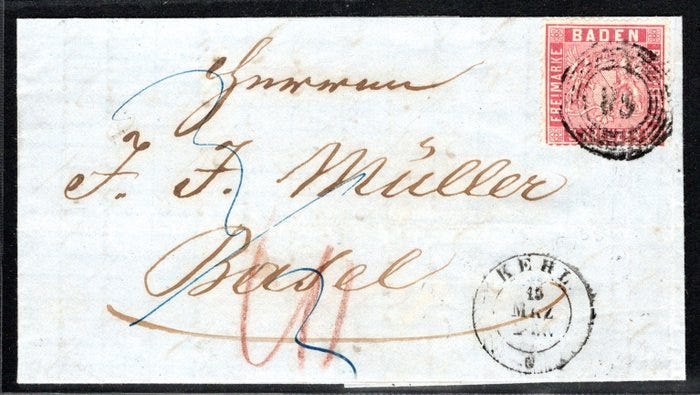 BADEN
FREIMARKE
Herren
J. J. Müller
Basel
KEHL
15
MRZ